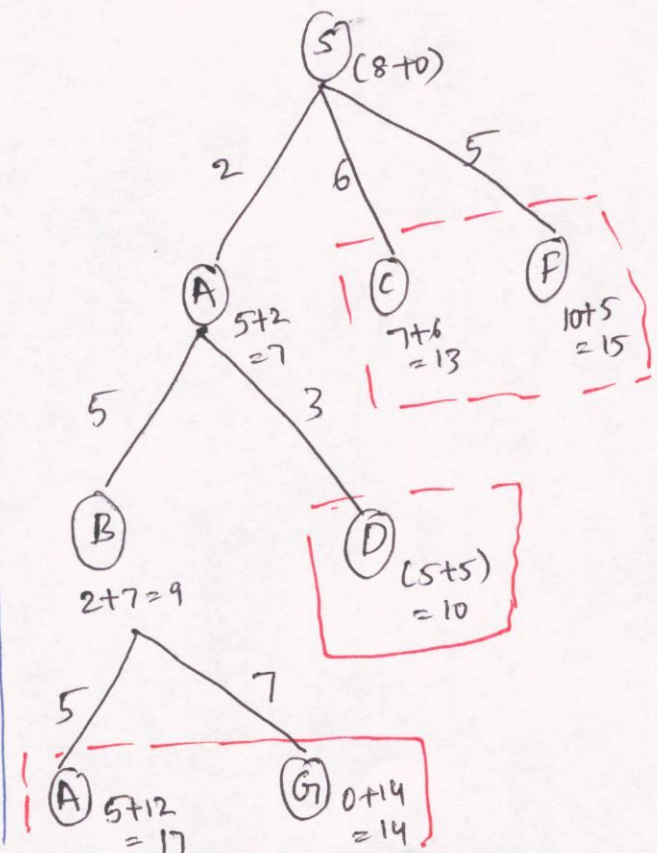 S
(8+0)
2
6
5
A
5+2
=7
C
7+6
=13
F
10+5
=15
5
3
B
2+7=9
D
(5+5)
=10
5
7
A
5+12
=17
G
0+14
=14